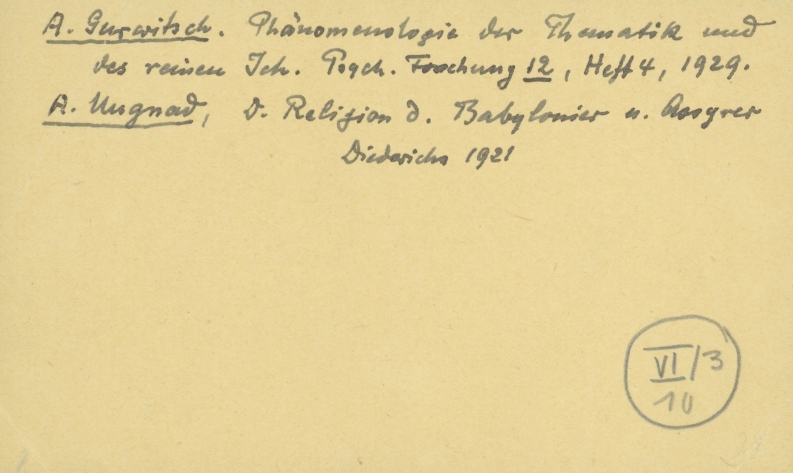 A. Gurwitsch. Phänomenologie der Thematik und
des reinen Ich. Psych. Forschung 12, Heft 4, 1929.
A. Ungnad, D. Religion d. Babylonier u. Assyrer
Diederichs 1921
VI/3
10